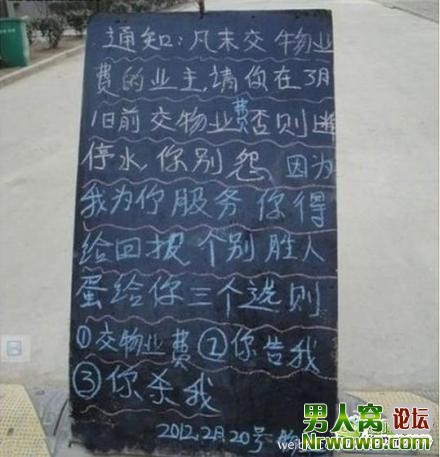 通知:凡未交物业
费的业主,请你在3月
1日前交物业费否则
停水,你别怨,因为
我为你服务你得
给回报 个别胜人
蛋给你三个选则
①交物业费②你告我
③你杀我
2012.2月20号
男人窝 论坛
Nrwowo.com